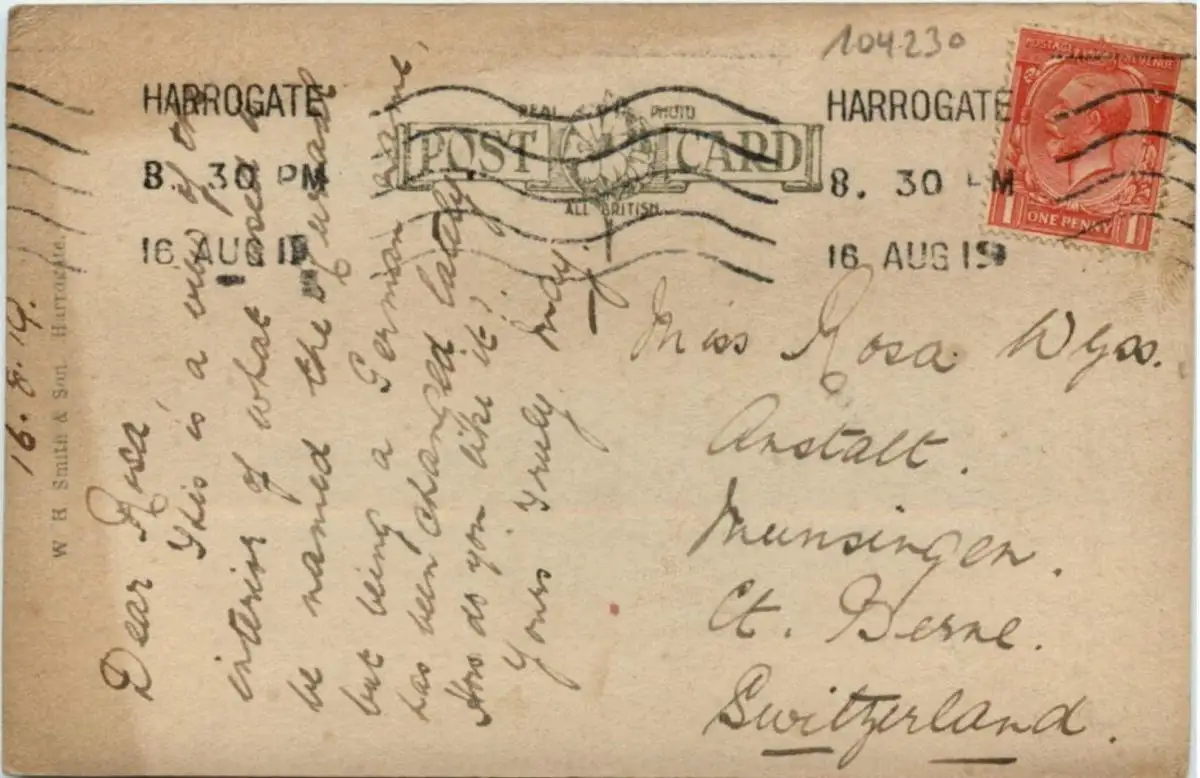 104230
HARROGATE
8. 30 PM
16 AUG 19
REAL PHOTO
POST CARD
ALL BRITISH
HARROGATE
8. 30 PM
16 AUG 19
POSTAGE REVENUE
1 ONE PENNY 1
W H Smith & Son, Harrogate.
16. 8. 19.
Dear Rosa,
This is a view of
interior of what used to
be named the Kursaal
but being a German name,
has been changed lately
How do you like it?
Yours Truly May.
Miss Rosa Wyss.
Anstalt.
Munsingen.
Ct. Berne.
Switzerland.